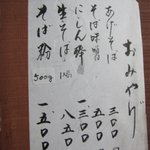 おみやげ
あげそば 三〇〇
そば味噌 五〇〇
にしん酢 一三〇〇
生そば 1㎏ 八五〇
そば粉 500g 一五〇〇